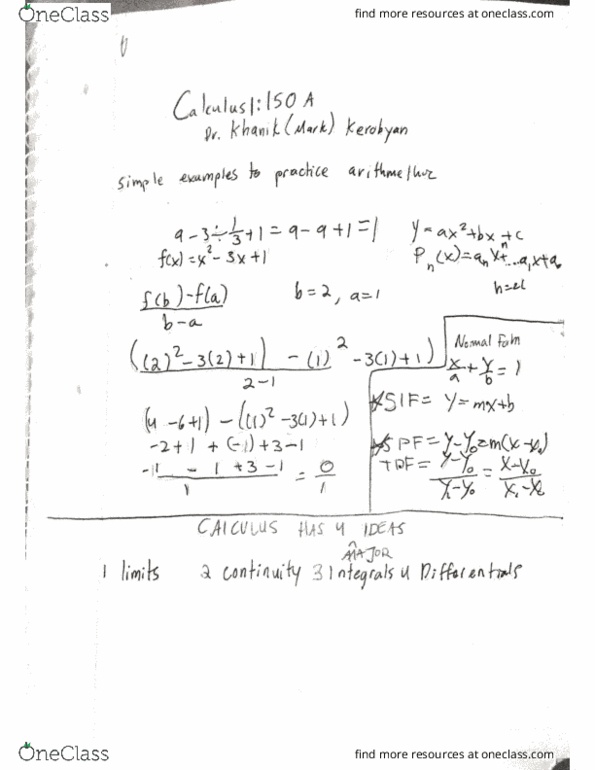 OneClass
find more resources at oneclass.com
Calculus 1: 150 A
Dr. Khanik (Mark) Kerobyan
simple examples to practice
9-3÷1/3+1=9-9+1=1
y=ax²+bx+c
f(x)=x²-3x+1
Pₙ(x)=aₙxⁿ+...a₁x+a₀
f(b)-f(a)
b-a
b=2, a=1
((2)²-3(2)+1) -(1)² -3(1)+1)
2-1
Normal Form
x/a+y/b=1
SIF= y=mx+b
(4-6+1)-((1)²-3(1)+1)
-2+1+(-1)+3-1
SPF=y-y₀=m(x-x₀)
-1 -1+3-1 = 0
1 1
CALCULUS HAS 4 IDEAS
^MAJOR
1 limits 2 continuity 3 Integrals 4 Differentials
OneClass
find more resources at oneclass.com